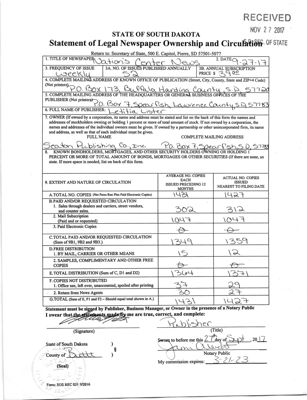 RECEIVED
NOV 27 2017
STATE OF SOUTH DAKOTA
Statement of Legal Newspaper Ownership and Circulation
OF STATE
Return to: Secretary of State, 500 E. Capitol, Pierre, SD 57501-5077
1. TITLE OF NEWSPAPER Nation's Center News
2. DATE 9-27-17
3. FREQUENCY OF ISSUE Weekly
3A. NO. OF ISSUES PUBLISHED ANNUALLY 52
3B. ANNUAL SUBSCRIPTION PRICE $
4. COMPLETE MAILING ADDRESS OF KNOWN OFFICE OF PUBLICATION (Street, City, County, State and ZIP+4 Code)
(Not printers) PO Box 173, Buffalo Harding County S.D. 57720
5. COMPLETE MAILING ADDRESS OF THE HEADQUARTERS OF GENERAL BUSINESS OFFICES OF THE
PUBLISHER (Not printer) PO Box 7, Spearfish, Lawrence County, SD 57783
6. FULL NAME OF PUBLISHER: Letitia Lister
7. OWNER (If owned by a corporation, its name and address must be stated and list on the back of this form the names and
addresses of stockholders owning or holding 1 percent or more of total amount of stock. If not owned by a corporation, the
names and addresses of the individual owners must be given. If owned by a partnership or other unincorporated firm, its name
and address, as well as that of each individual must be given.
FULL NAME COMPLETE MAILING ADDRESS
Seaton Publishing Co., Inc. Po Box 7, Spearfish, S.D. 57783
8. KNOWN BONDHOLDERS, MORTGAGEE, AND OTHER SECURITY HOLDERS OWNING OR HOLDING 1
PERCENT OR MORE TOTAL AMOUNT OF BONDS, MORTGAGES OR OTHER SECURITIES (If there are none, so
state. If more space is needed, list on back of this form.
9. EXTENT AND NATURE OF CIRCULATION
AVERAGE NO. COPIES EACH ISSUED PRECEDING 12 MONTHS
ACTUAL NO. COPIES ISSUED NEAREST TO FILING DATE
A. TOTAL NO. COPIES 1431 1427
B. PAID AND/OR REQUESTED CIRCULATION
1. Sales through dealers and carriers, street vendors, and counter sales. 302 312
2. Mail Subscription (Paid and or requested) 1047 1047
3. Paid Electronic Copies
C. TOTAL PAID AND/OR REQUESTED CIRCULATION (Sum of 9B1, 9B2 and 9B3.) 1349 1359
D. FREE DISTRIBUTION
1. BY MAIL, CARRIER OR OTHER MEANS 15 12
2. SAMPLES, COMPLIMENTARY AND OTHER FREE COPIES
E. TOTAL DISTRIBUTION (Sum of C, D1 and D2) 1364 1371
F. COPIES NOT DISTRIBUTED
1. Office use, left over, unaccounted, spoiled after printing 37 29
2. Return from News Agents 30 27
G. TOTAL (Sum of E, F1 and F2 - Should equal total shown in A.) 1431 1427
Statement must be signed by Publisher, Business Manager, or Owner in the presence of a Notary Public
I swear that the statements made by me are true, correct, and complete:
Publisher
(Signature) (Title)
State of South Dakota )
Sworn to before me this 27th day of Sept 2017
County of Butte )
Notary Public
(Seal) My commission expires: 3-21-23